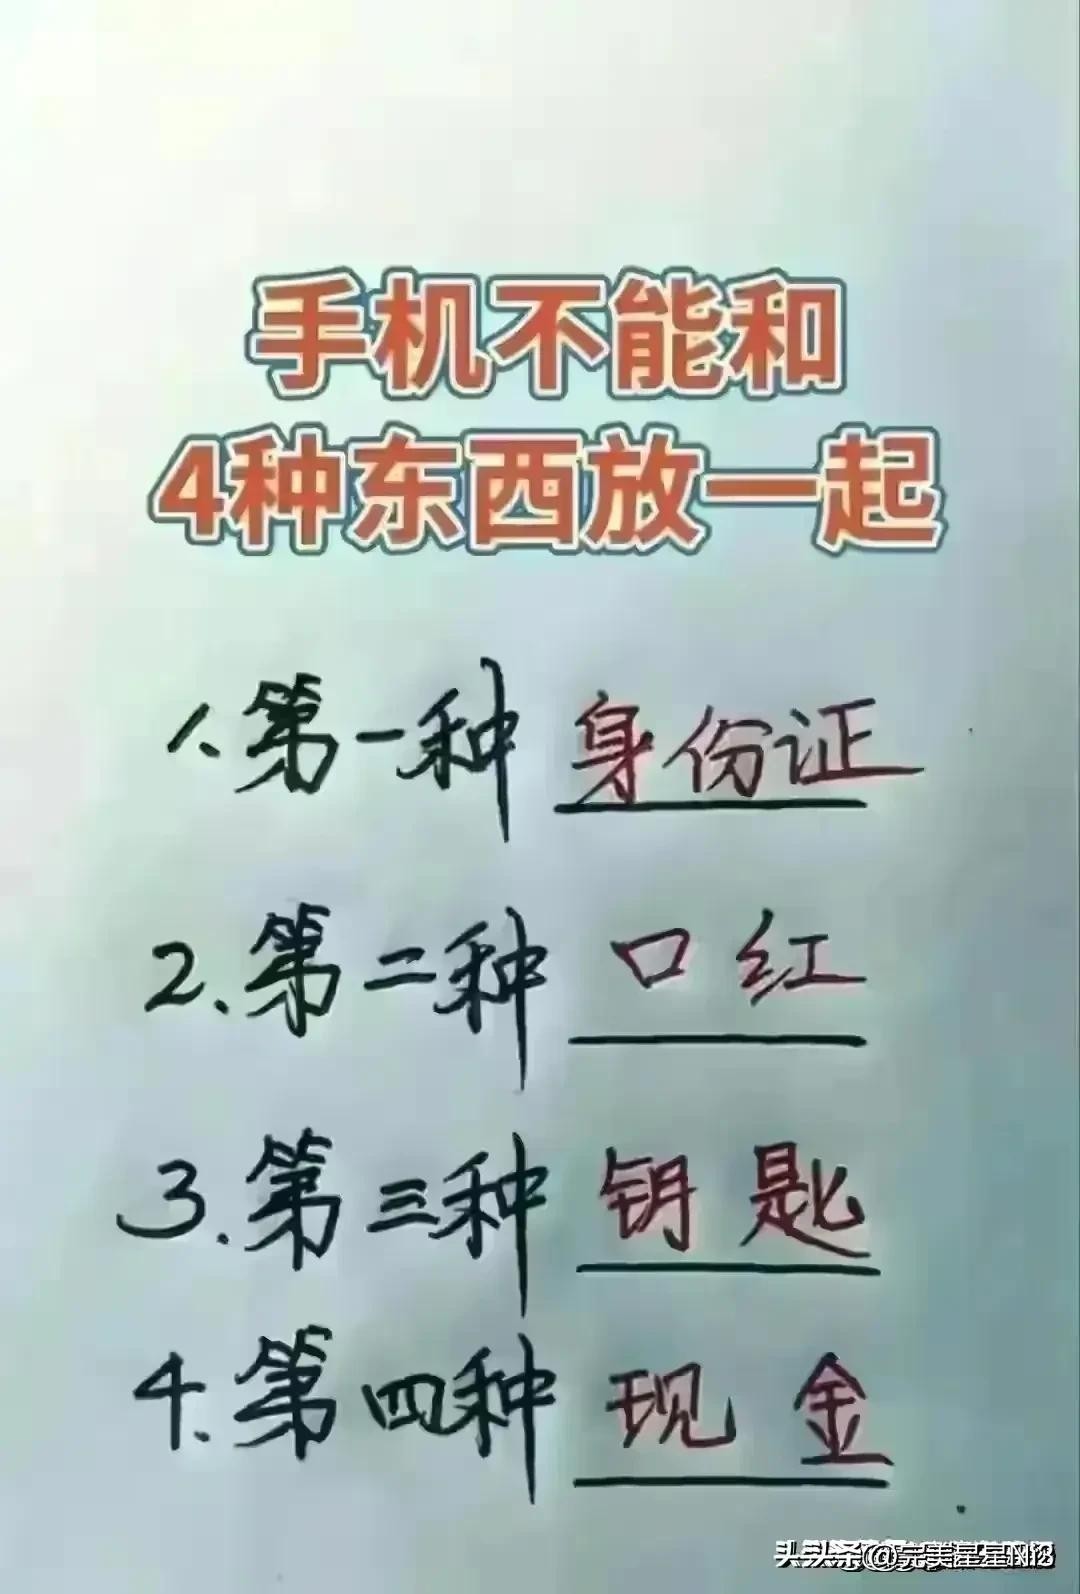 手机不能和
4种东西放一起
1、第一种 身份证
2、第二种 口红
3.第三种 钥匙
4、第四种 现金
头头条@完美星星